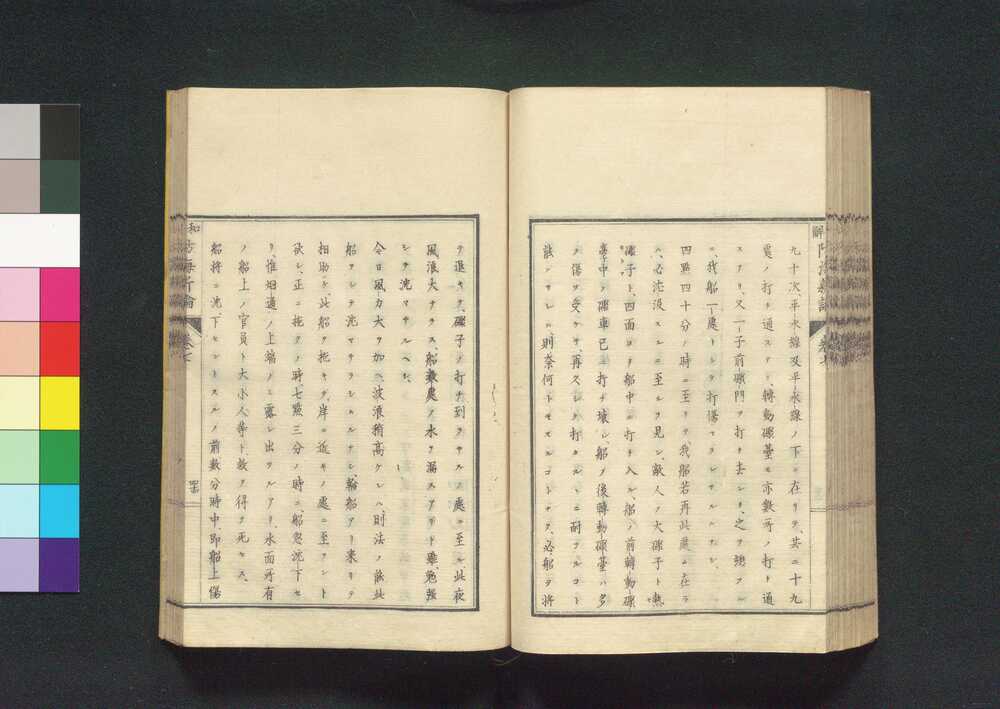 九十次平水線及平水線ノ下ニ在リテ、共ニ十九
夷ノ打ト通スアリ、轉動礮臺モ亦數所ノ打ト通
スアリ、又一子前礮門ヲ打ト去レリ、之ヲ總フルニ
我船一處トシテ打傷セラレサルナシ、
四點四十分ノ時ニ至リテ、我船若再此處ニ在ラ
ハ、必沈没スルニ至ルヲ見ン、敵人ノ大礮子ト熱
礮子ト、四面ヨリ船中ニ打ト入ル、船ノ前轉動礮
臺中ノ礮車已ニ打ト壞レ、船ノ後轉動礮臺ハ多
ク傷ヲ受ケテ、再スレトモ打タルヽニ耐フルコト
能ハサレハ、則奈何トモスルコトナク、必船ヲ將
テ退キテ、礮子ノ打チ到ラサルノ處ニ至ル、此夜
風浪大ナラス、船數處ノ水ヲ漏スアリト雖、勉強
シテ沈マサルヘシ、
今日風力大ヲ加ヘ、波浪稍高ケレハ、則法ノ能此
船ヲシテ沈マサラシムルナシ、輪船アリ來リテ
相助ケ、此船ヲ拖キテ、岸ニ近キノ處ニ至ラント
欲シ、正ニ拖クノ時、七點三分ノ時ニ、船忽沈下セ
リ、惟烟通ノ上端ノミ露レ出ヲルアリ、水面所有
ノ船上ノ官員ト大小人等ト、救ヲ得テ死セス、
船將ニ沈下セントスルノ前數分時中、即船上傷
防海新論
卷七